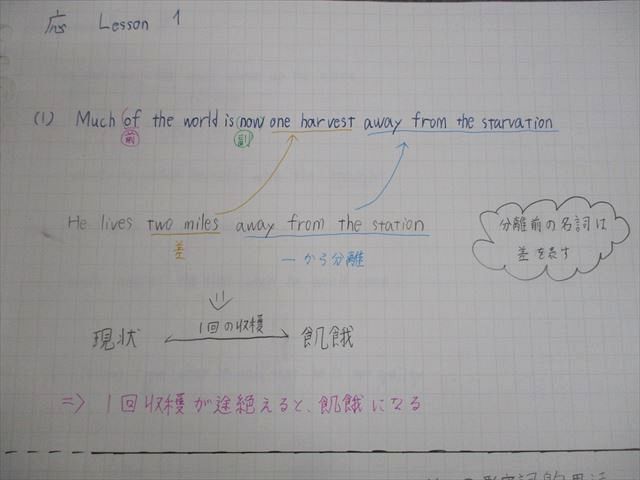 応 Lesson 1
(1) Much of the world is now one harvest away from the starvation
前 副
He lives two miles away from the station
差 ーから分離
分離前の名詞は
差を表す
現状 1回の収穫 飢餓
⇒ 1回収穫が途絶えると、飢餓になる